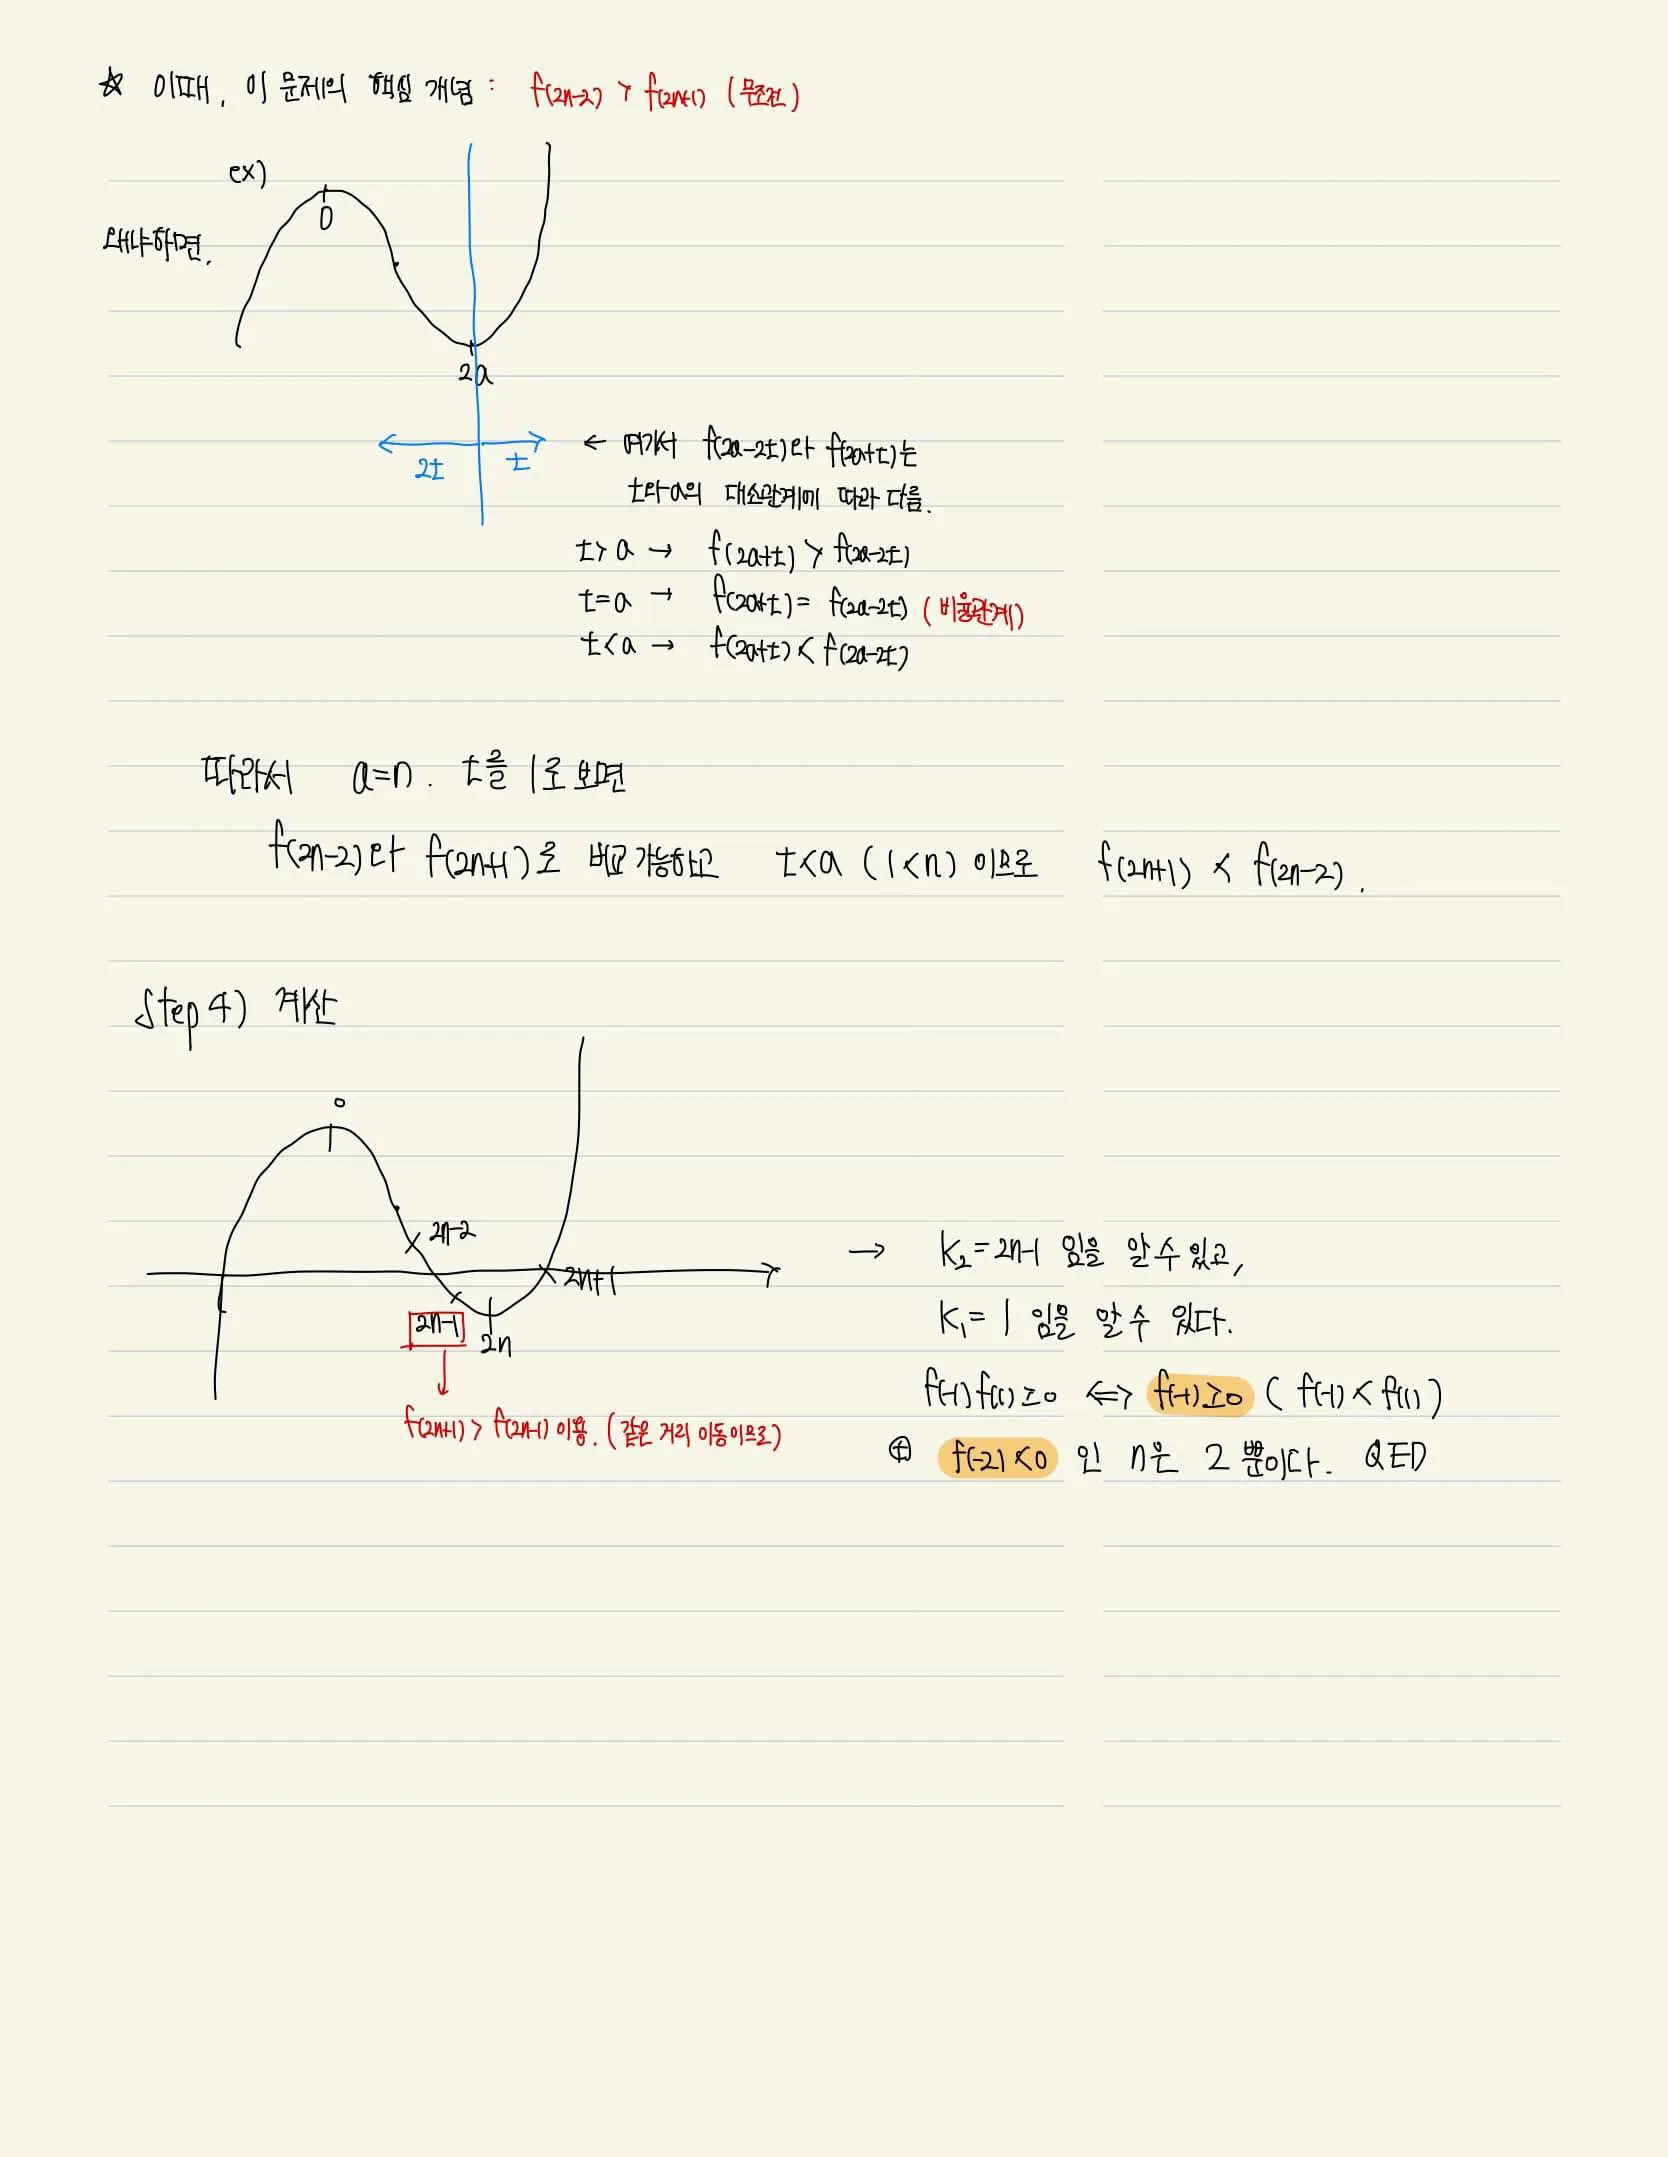 ☆ 이때, 이 문제의 핵심 개념 : f(2n-2) > f(2n+1) (무조건)
ex)
0
왜냐하면,
2a
2t t
← 여기서 f(2a-2t)와 f(2a+t)는
t와 a의 대소관계에 따라 다름.
t > a → f(2a+t) > f(2a-2t)
t = a → f(2a+t) = f(2a-2t) (비율관계)
t < a → f(2a+t) < f(2a-2t)
따라서 a=n. t를 1로 보면
f(2n-2)와 f(2n+1)로 비교 가능하고 t<a (1<n) 이므로 f(2n+1) < f(2n-2).
Step 4) 계산
0
2n-2
2n+1
2n-1
2n
f(2n+1) > f(2n-1) 이용. (같은 거리 이동이므로)
→ K₂ = 2n-1 임을 알 수 있고,
K₁ = 1 임을 알 수 있다.
f(-1)f(1) ≥ 0 ⟺ f(-1) ≥ 0 ( f(-1) < f(1) )
⊕ f(-2) < 0 인 n은 2 뿐이다. QED